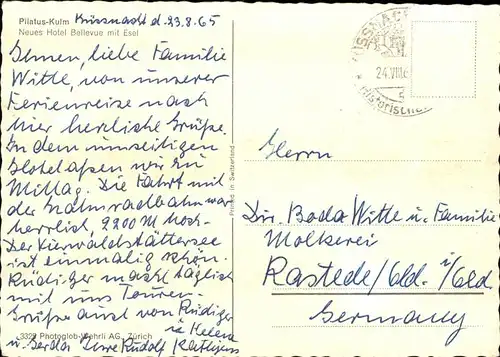 Pilatus-Kulm
Küssnacht d. 23.8.65
Neues Hotel Bellevue mit Esel
Ihnen, liebe Familie
Witte, von unserer
Ferienreise nach
hier herzliche Grüße.
In dem umseitigen
Hotel aßen wir zu
Mittag. Die Fahrt mit
der Zahnradbahn war
herrlich, 2200 M hoch-
Der Vierwaldstättersee
ist einmalig schön.
Rüdiger macht täglich
mit uns Touren-
Grüße auch von Rüdiger
u. Helena
u. Gerda Uwe Rudolf
3329 Photoglob-Wehrli AG, Zürich
Printed in Switzerland
24.VIII.6
Historische
Herrn
Dir. Bodo Witte u. Familie
Molkerei
Rastede/Old. i/Old.
Germany